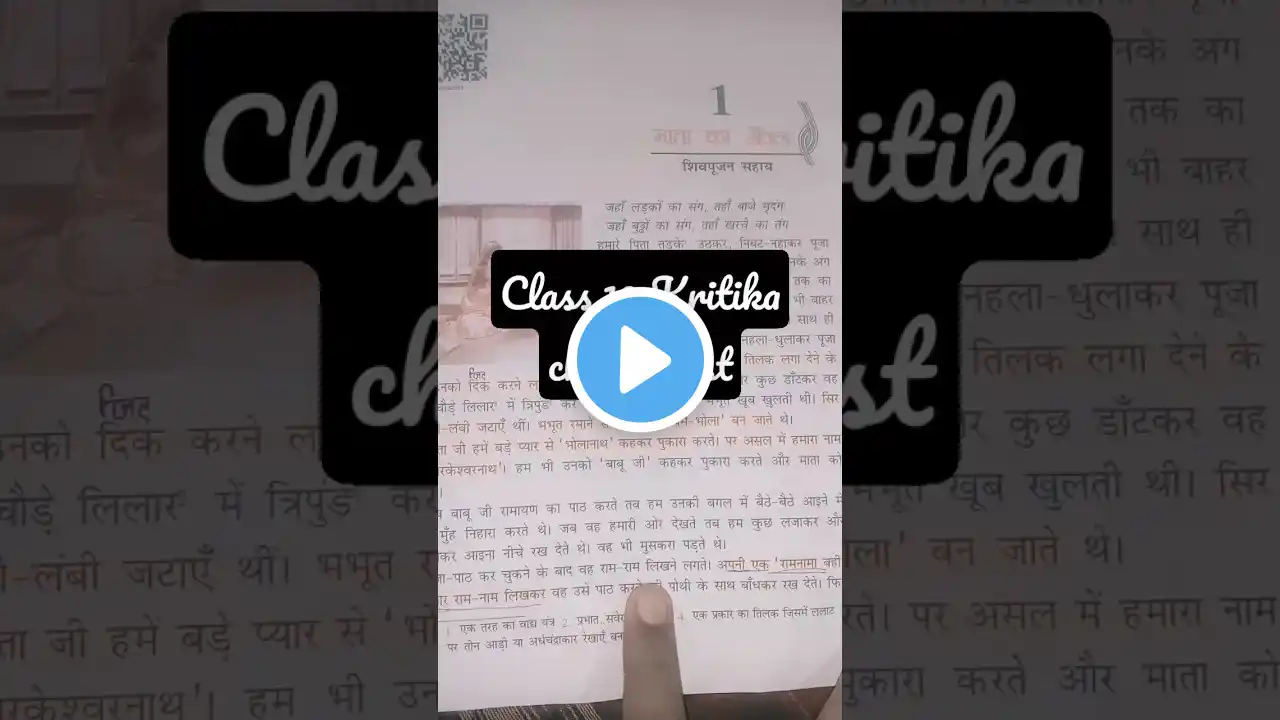 1
माता का अँचल
शिवपूजन सहाय
जहाँ लड़कों का संग, तहाँ बाजे मृदंग
जहाँ बुड्ढों का संग, तहाँ खरचे का तंग
हमारे पिता तड़के उठकर, निबट-नहाकर पूजा
नके अंग
तक का
भी बाहर
साथ ही
नहला-धुलाकर पूजा
तिलक लगा देने के
Class Kritika
st
जिद
नको दिक करने ल र कुछ डाँटकर वह
चौड़े लिलार में त्रिपुंड कर भभूत खूब खुलती थी। सिर
-लंबी जटाएँ थीं। भभूत रमाने -भोला' बन जाते थे।
ता जी हमें बड़े प्यार से 'भोलानाथ' कहकर पुकारा करते। पर असल में हमारा नाम
रकेश्वरनाथ'। हम भी उनको 'बाबू जी' कहकर पुकारा करते और माता को
बाबू जी रामायण का पाठ करते तब हम उनकी बगल में बैठे-बैठे आइने में
मुँह निहारा करते थे। जब वह हमारी ओर देखते तब हम कुछ लजाकर और
कर आइना नीचे रख देते थे। वह भी मुसकरा पड़ते थे।
जा-पाठ कर चुकने के बाद वह राम-राम लिखने लगते। अपनी एक 'रामनामा बही
र राम-नाम लिखकर वह उसे पाठ करने की पोथी के साथ बाँधकर रख देते। फि
1 एक तरह का वाद्य यंत्र 2 प्रभात, सवेर 4 एक प्रकार का तिलक जिसमें ललाट
पर तीन आड़ी या अर्धचंद्राकार रेखाएँ बन